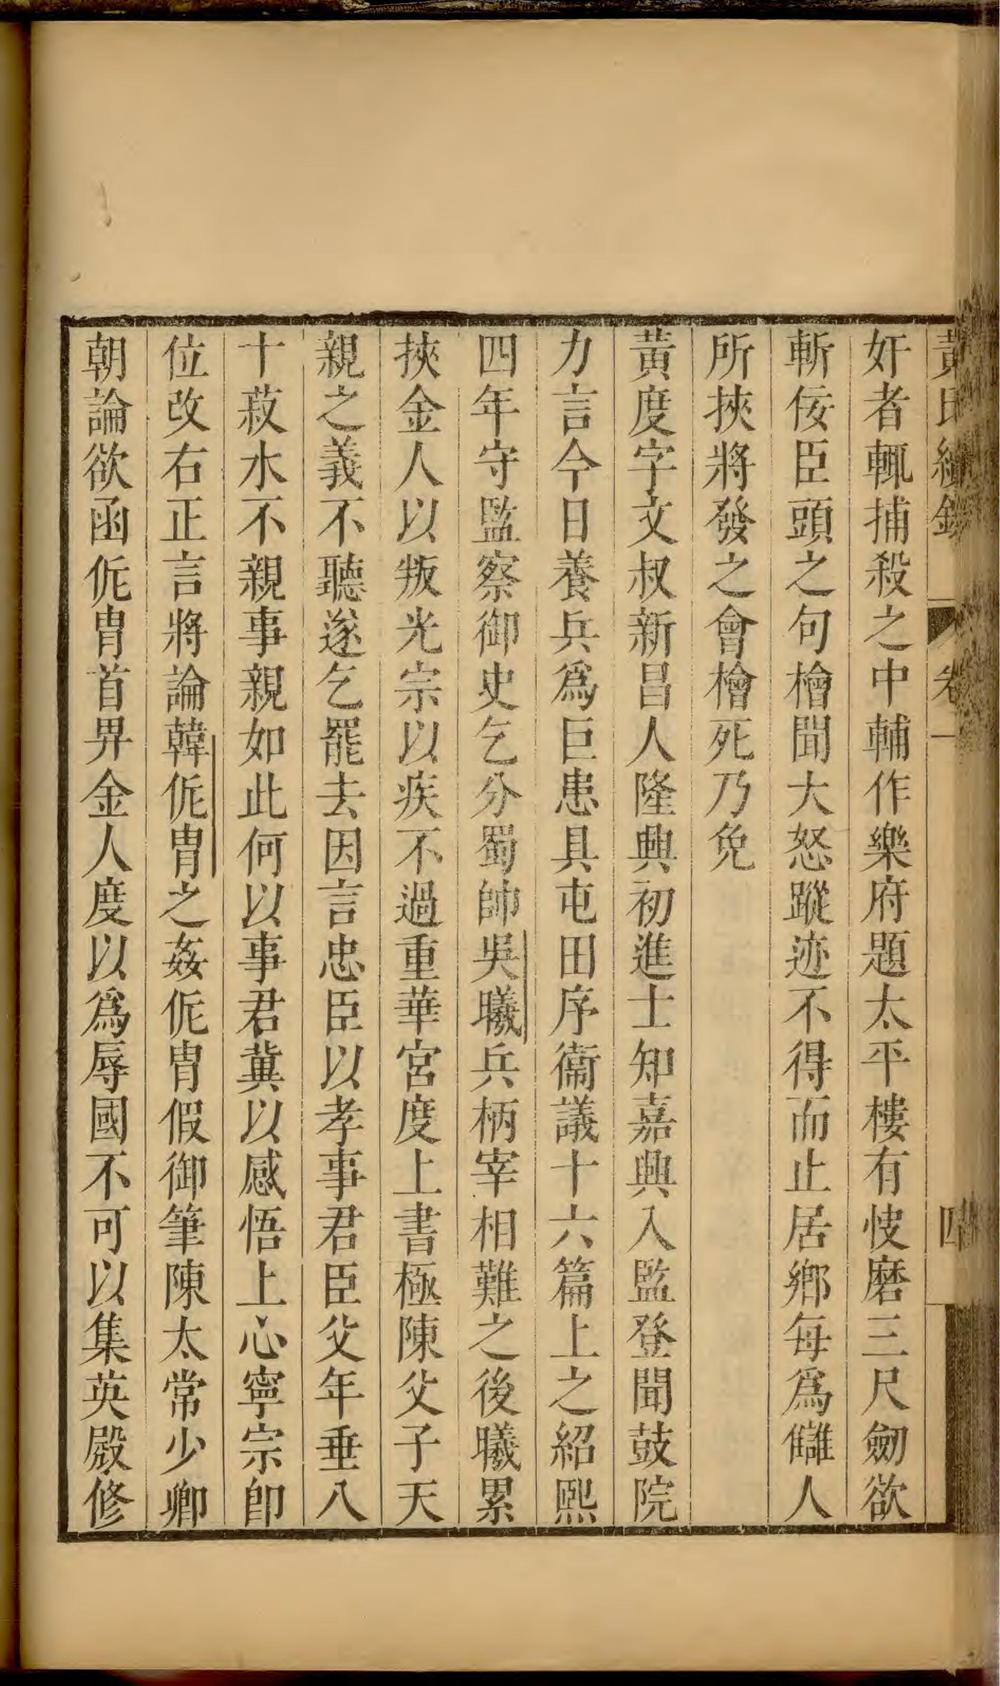 黃氏續錄 卷一 四
奸者輒捕殺之中輔作樂府題太平樓有快磨三尺劒欲
斬佞臣頭之句檜聞大怒蹤迹不得而止居鄉每爲讎人
所挾將發之會檜死乃免
黃度字文叔新昌人隆興初進士知嘉興入監登聞鼓院
力言今日養兵爲巨患具屯田序衞議十六篇上之紹熙
四年守監察御史乞分蜀帥吳曦兵柄宰相難之後曦累
挾金人以叛光宗以疾不過重華宮度上書極陳父子天
親之義不聽遂乞罷去因言忠臣以孝事君臣父年垂八
十菽水不親事親如此何以事君冀以感悟上心寧宗卽
位改右正言將論韓侂冑之姦侂冑假御筆陳太常少卿
朝論欲函侂冑首畀金人度以爲辱國不可以集英殿修